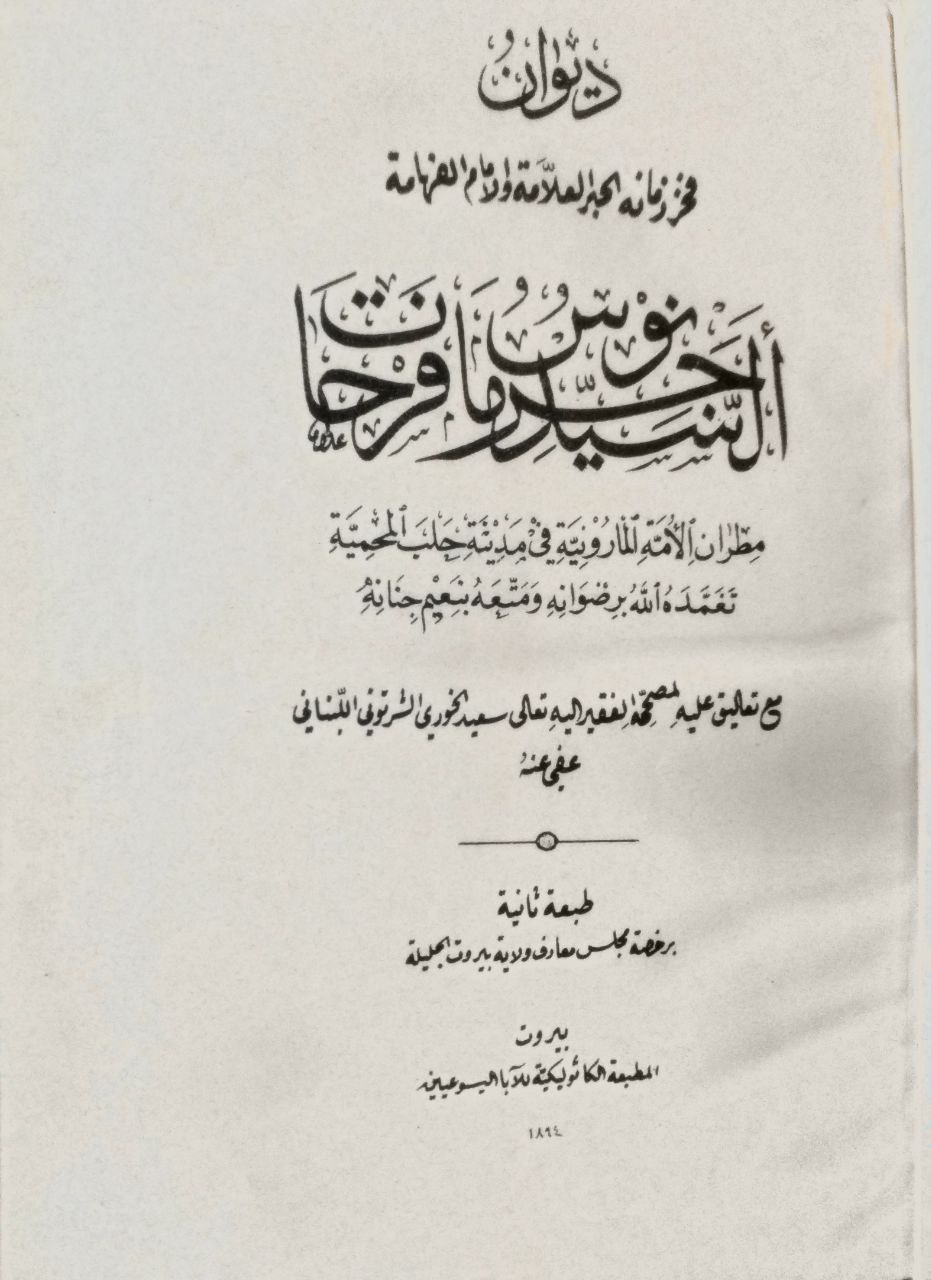 ديوان
فخر زمانه الحبر العلّامة والإمام الفهامة
ألسَّيِّد جرمانوس فرحات
مِطْرَانِ ٱلْأُمَّةِ ٱلْمَارُوْنِيَّةِ فِيْ مَدِيْنَةِ حَلَبَ ٱلْمَحْمِيَّةِ
تَغَمَّدَهُ ٱللّٰهُ بِرِضْوَانِهِ وَمَتَّعَهُ بِنَعِيْمِ جِنَانِهِ
مع تعاليق عليهِ لمصحّحهِ الفقير اليهِ تعالى سعيد الخوري الشرتوني اللّبناني
عفي عنهُ
طبعة ثانية
برخصة مجلس معارف ولاية بيروت الجليلة
بيروت
المطبعة الكاثوليكيّة للآباء اليسوعيين
١٨٩٤